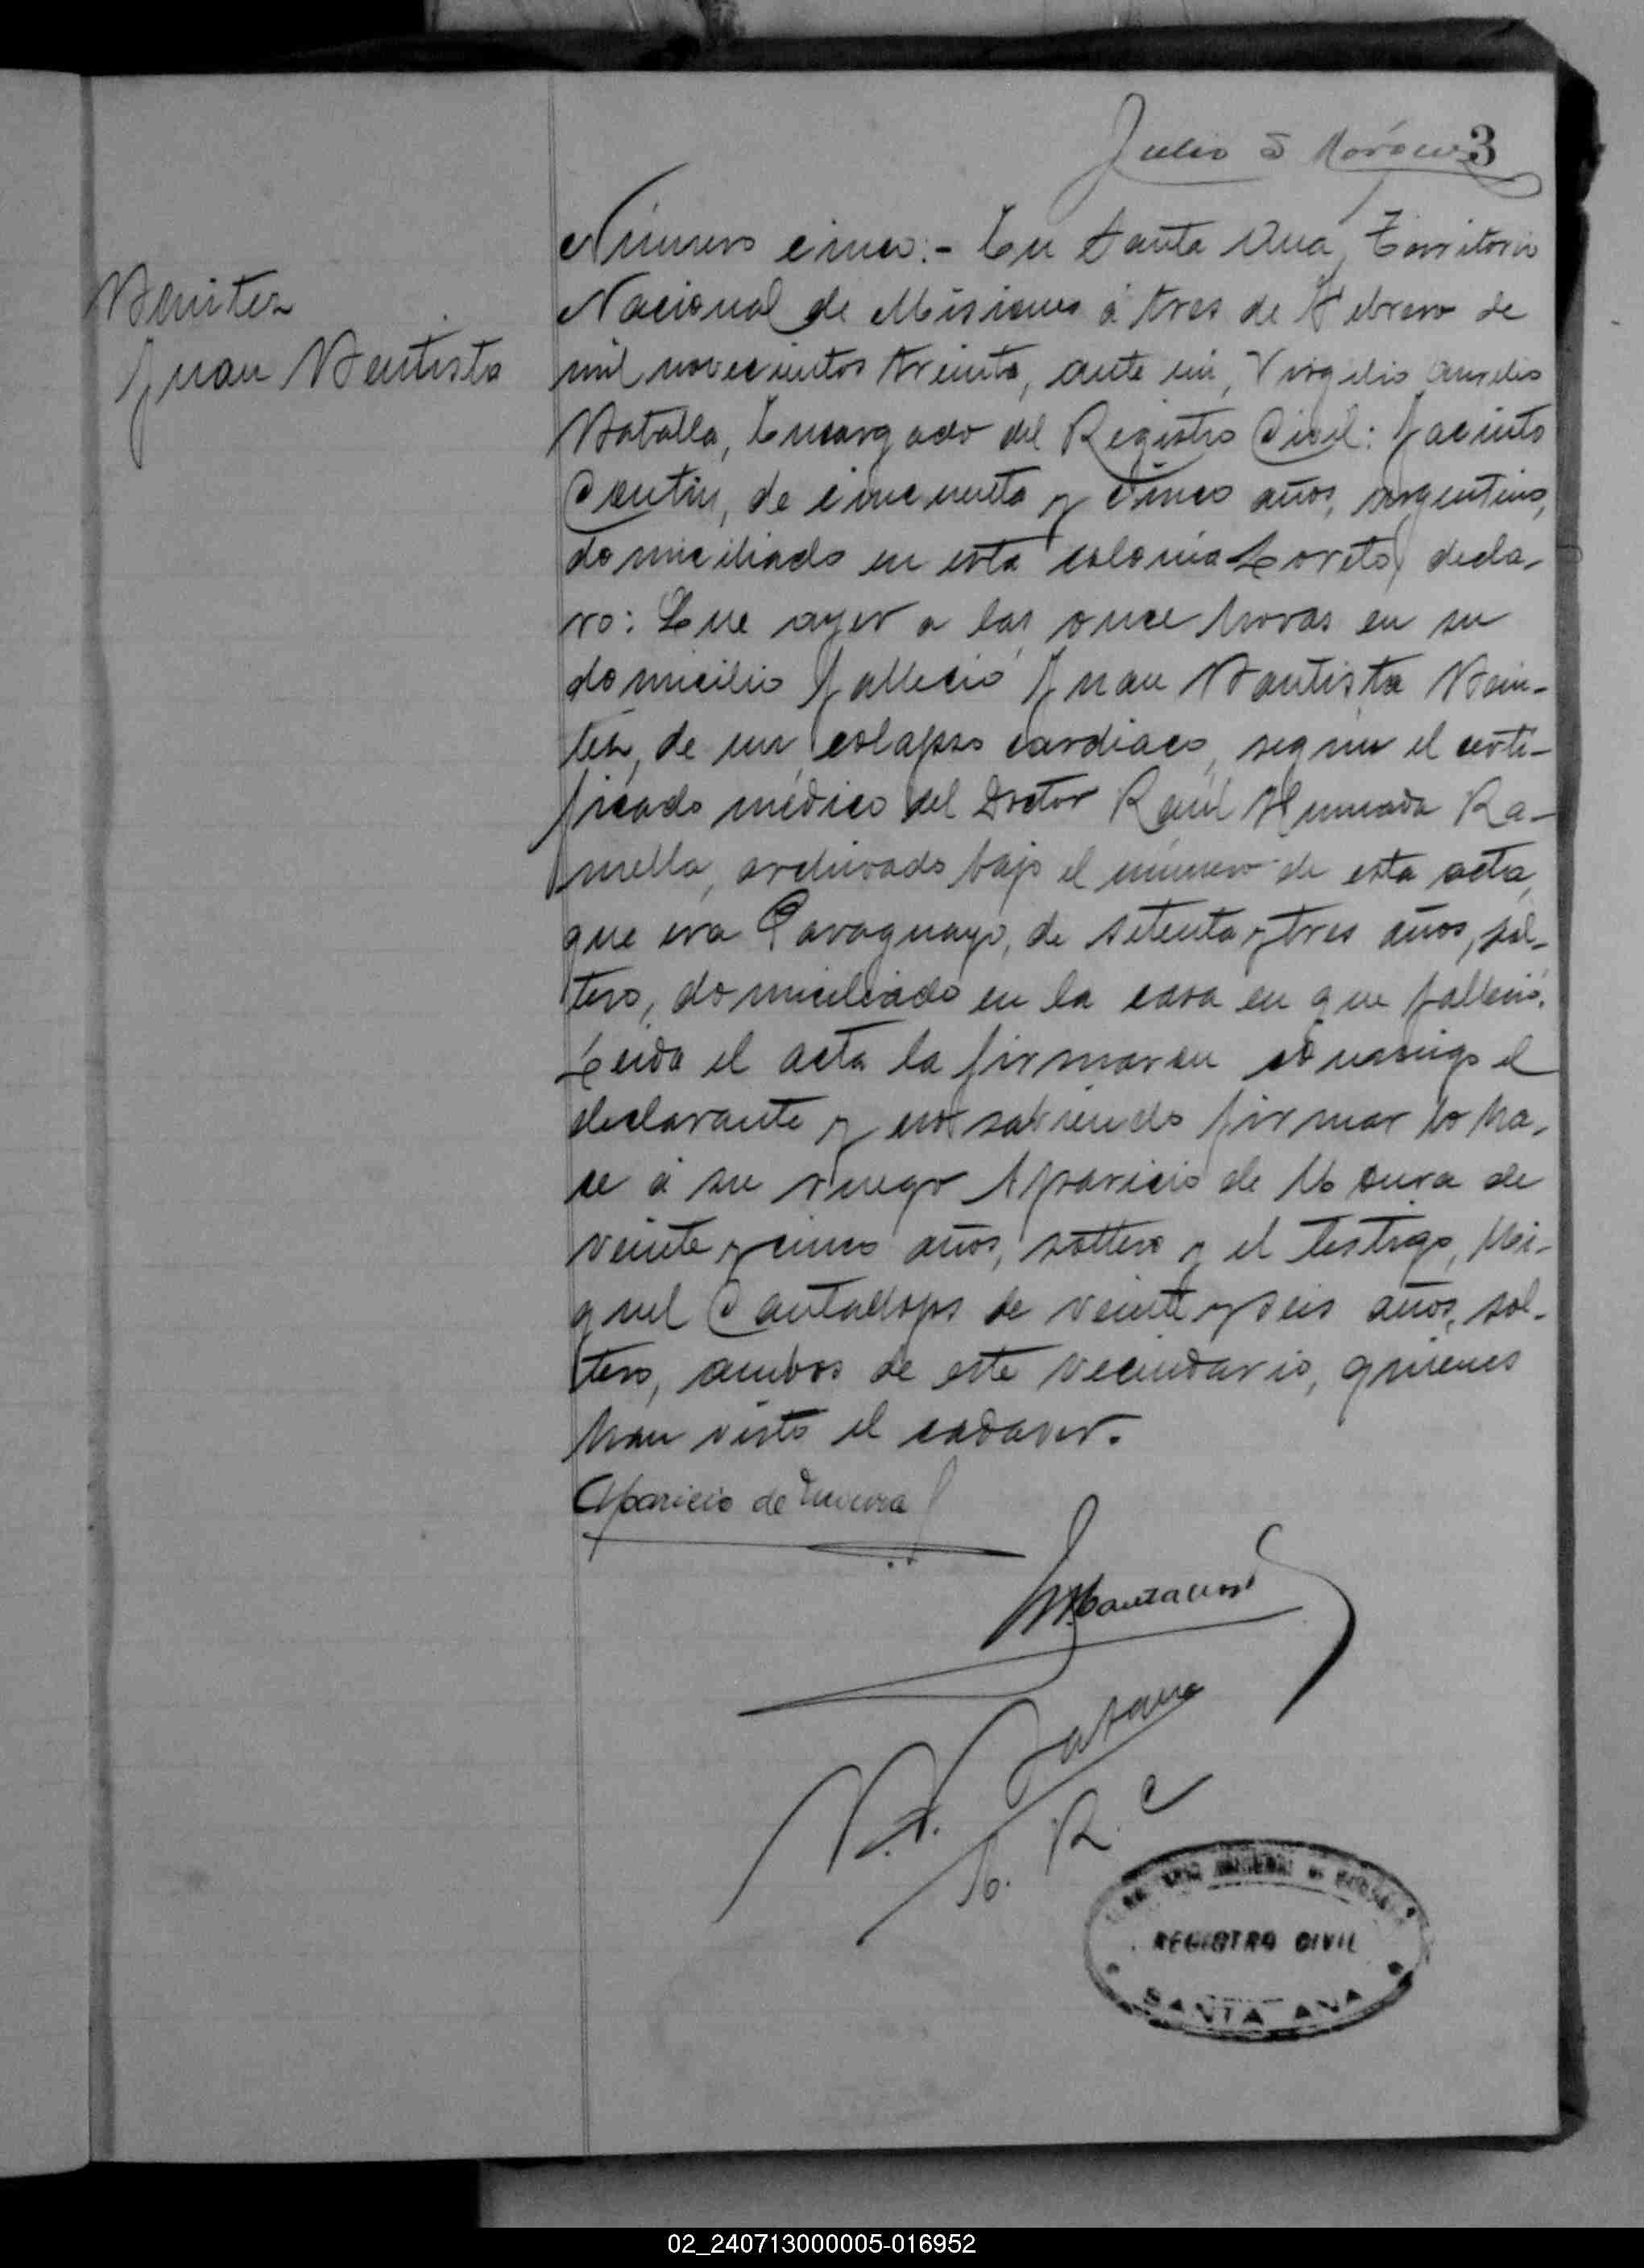 Julio S 3
Benitez
Juan Bautista
Número cinco:- En Santa Ana, Territorio
Nacional de Misiones á tres de Febrero de
mil novecientos treinta, ante mi, Virgilio Aurelio
Batalla, Encargado del Registro Civil: Jacinto
de cincuenta y cinco años, argentino,
domiciliado en esta colonia Loreto, decla-
ro: Que ayer a las once horas en su
domicilio falleció Juan Bautista Beni-
tez, de un colapso cardiaco, según el certi-
ficado médico del Doctor Raúl Ahumada Ra-
mella, archivado bajo el número de esta acta,
que era Paraguayo, de setenta y tres años, sol-
tero, domiciliado en la casa en que falleció.
Leida el acta la firmaron conmigo el
declarante y no sabiendo firmar lo ha-
ce á su ruego Aparicio de Moura de
veinte y cinco años, soltero y el testigo, Mi-
guel de veinte y seis años, sol-
tero, ambos de este vecindario, quienes
han visto el cadaver.
Aparicio de Moura
V. A. Batalla
E. R. C
REGISTRO CIVIL
SANTA ANA
02_240713000005-016952